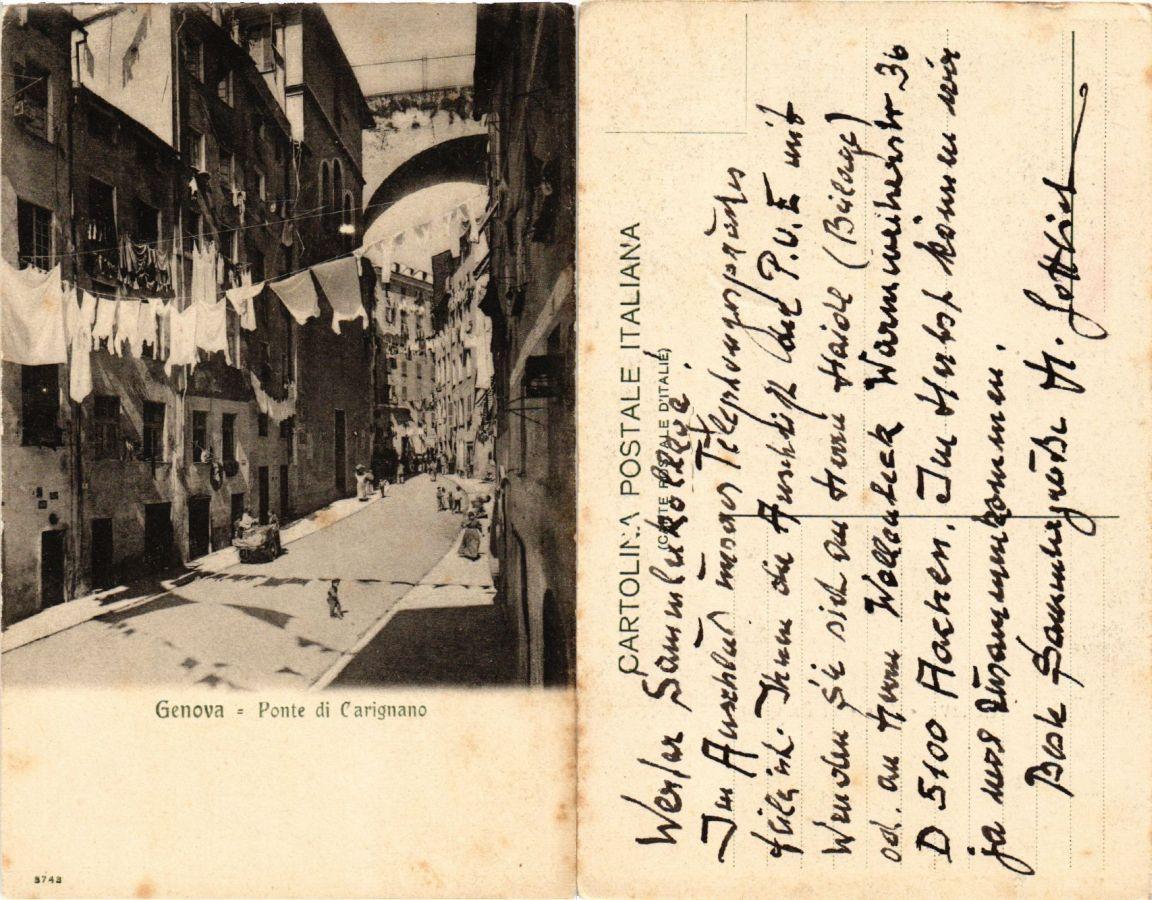 Genova = Ponte di Carignano
3743
CARTOLINA POSTALE ITALIANA
(CARTE POSTALE D'ITALIE)
Werter Sammlerkollege!
Im Anschluß unseres Telephongesprächs
teile ich Ihnen die Anschrift auf P.u.E mit
Wenden Sie sich an Herrn Haide (Beilage)
od. an Herrn Wollenbeck Warmweiherstr 36
D 5100 Aachen. Im Herbst können wir
ja uns zusammenkommen.
Beste Sammlergrüße H.